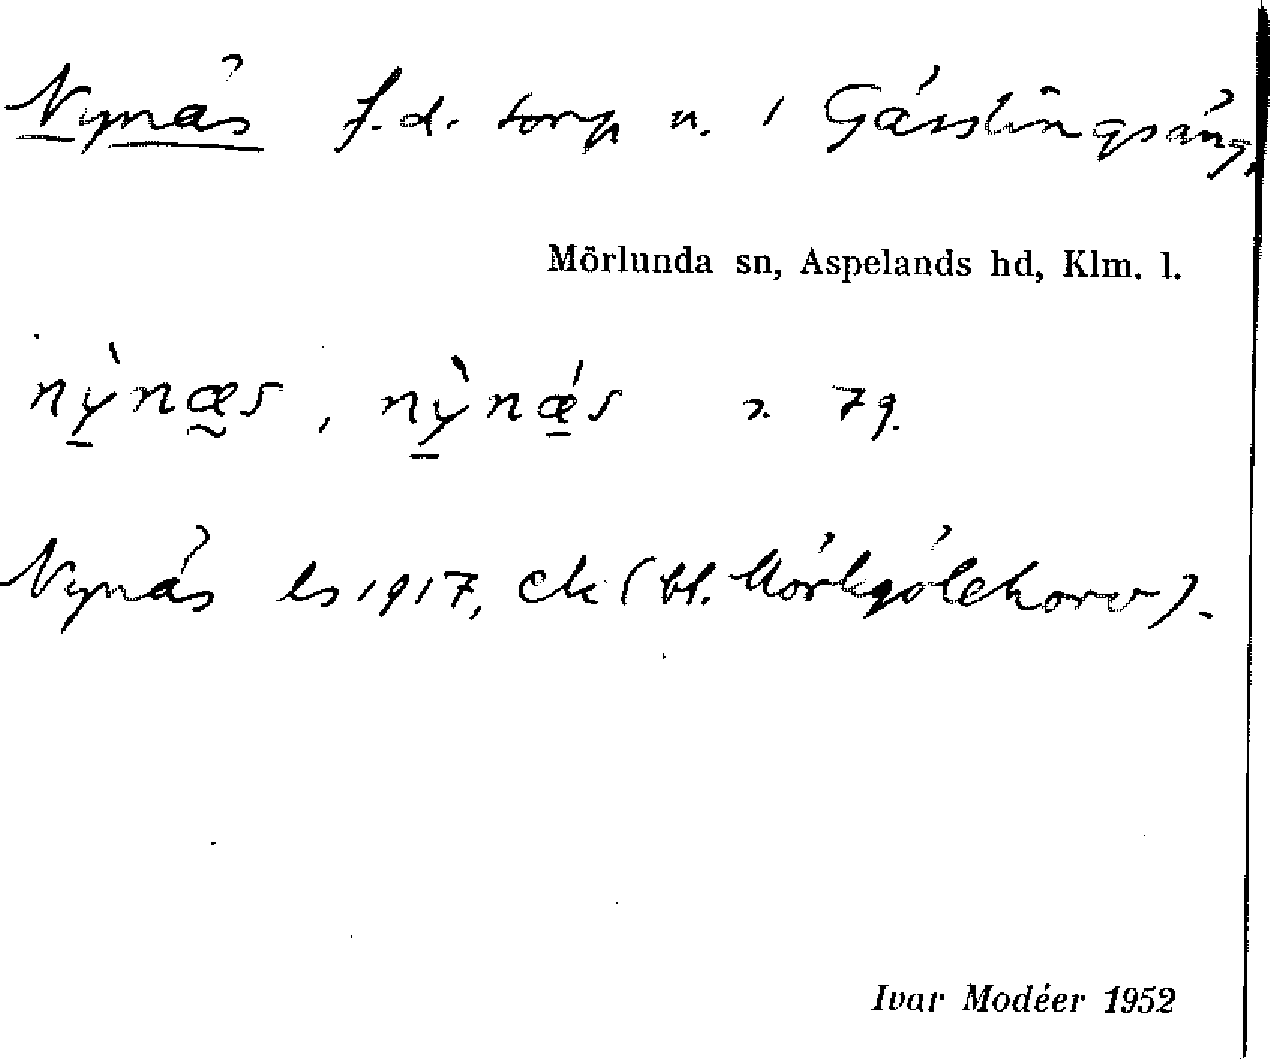 Nynäs f.d. torp u. Gässlingsäng,
Mörlunda sn, Aspelands hd, Klm. l.
nỳnæs, nỳnǽs 79.
Nynäs ls 1917, ek (bl. Mörkgölekorv).
Ivar Modéer 1952